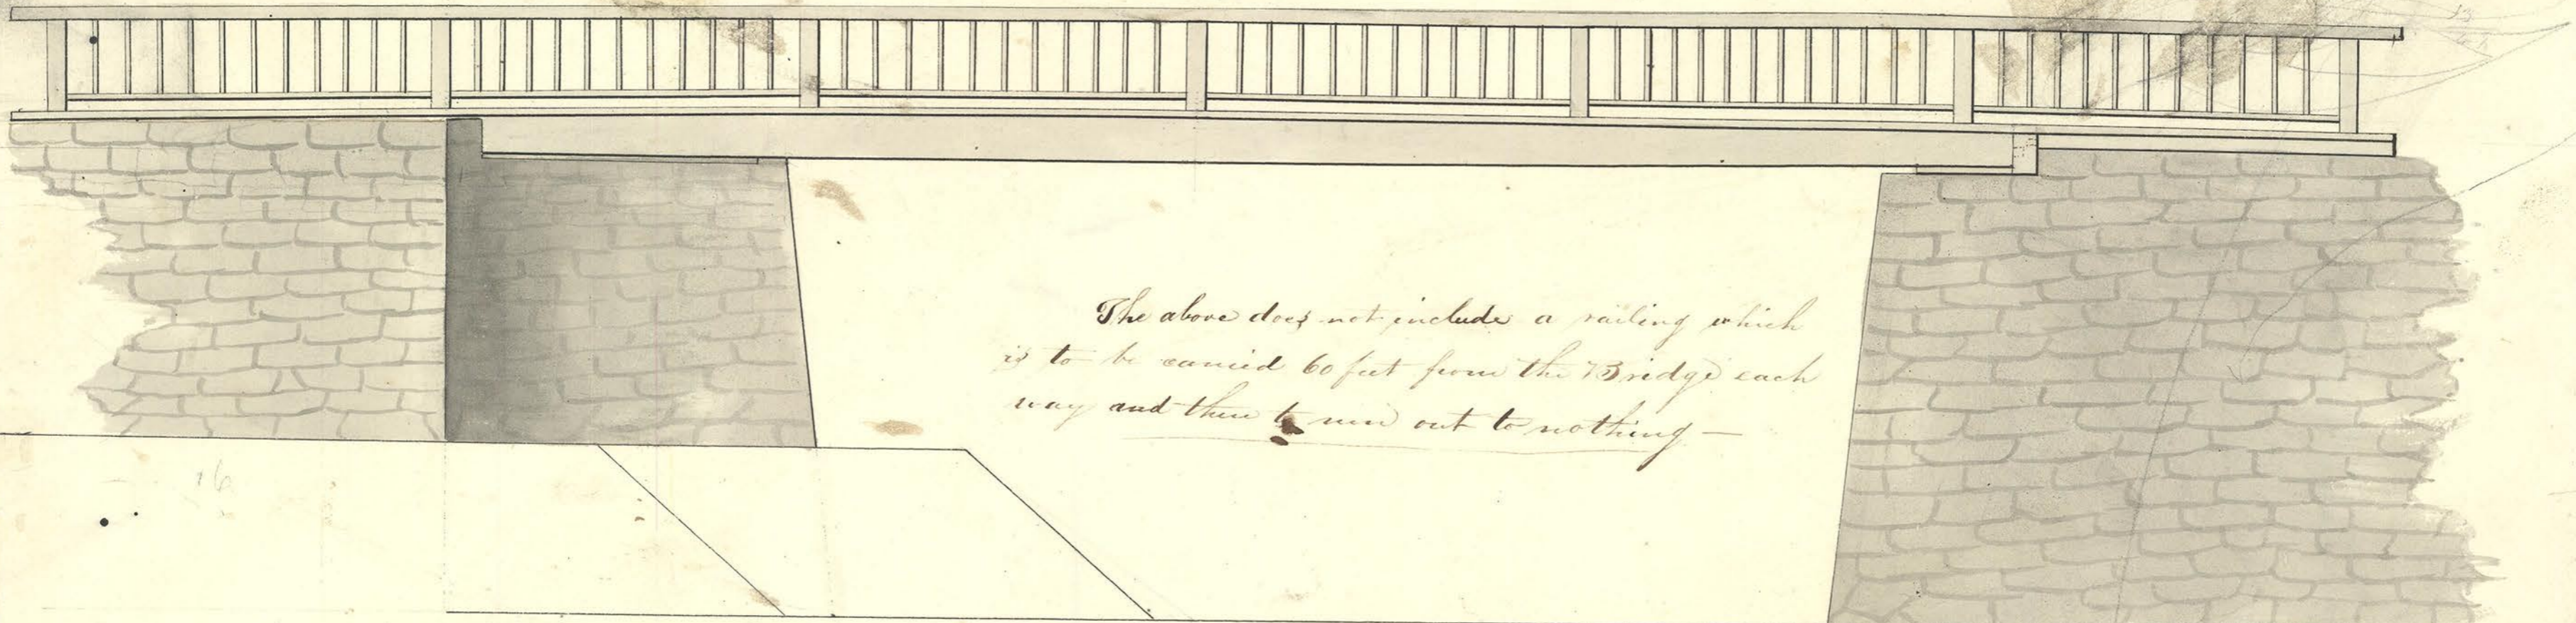 The above does not include a railing which
is to be carried 60 feet from the Bridge each
way and then to run out to nothing —
16